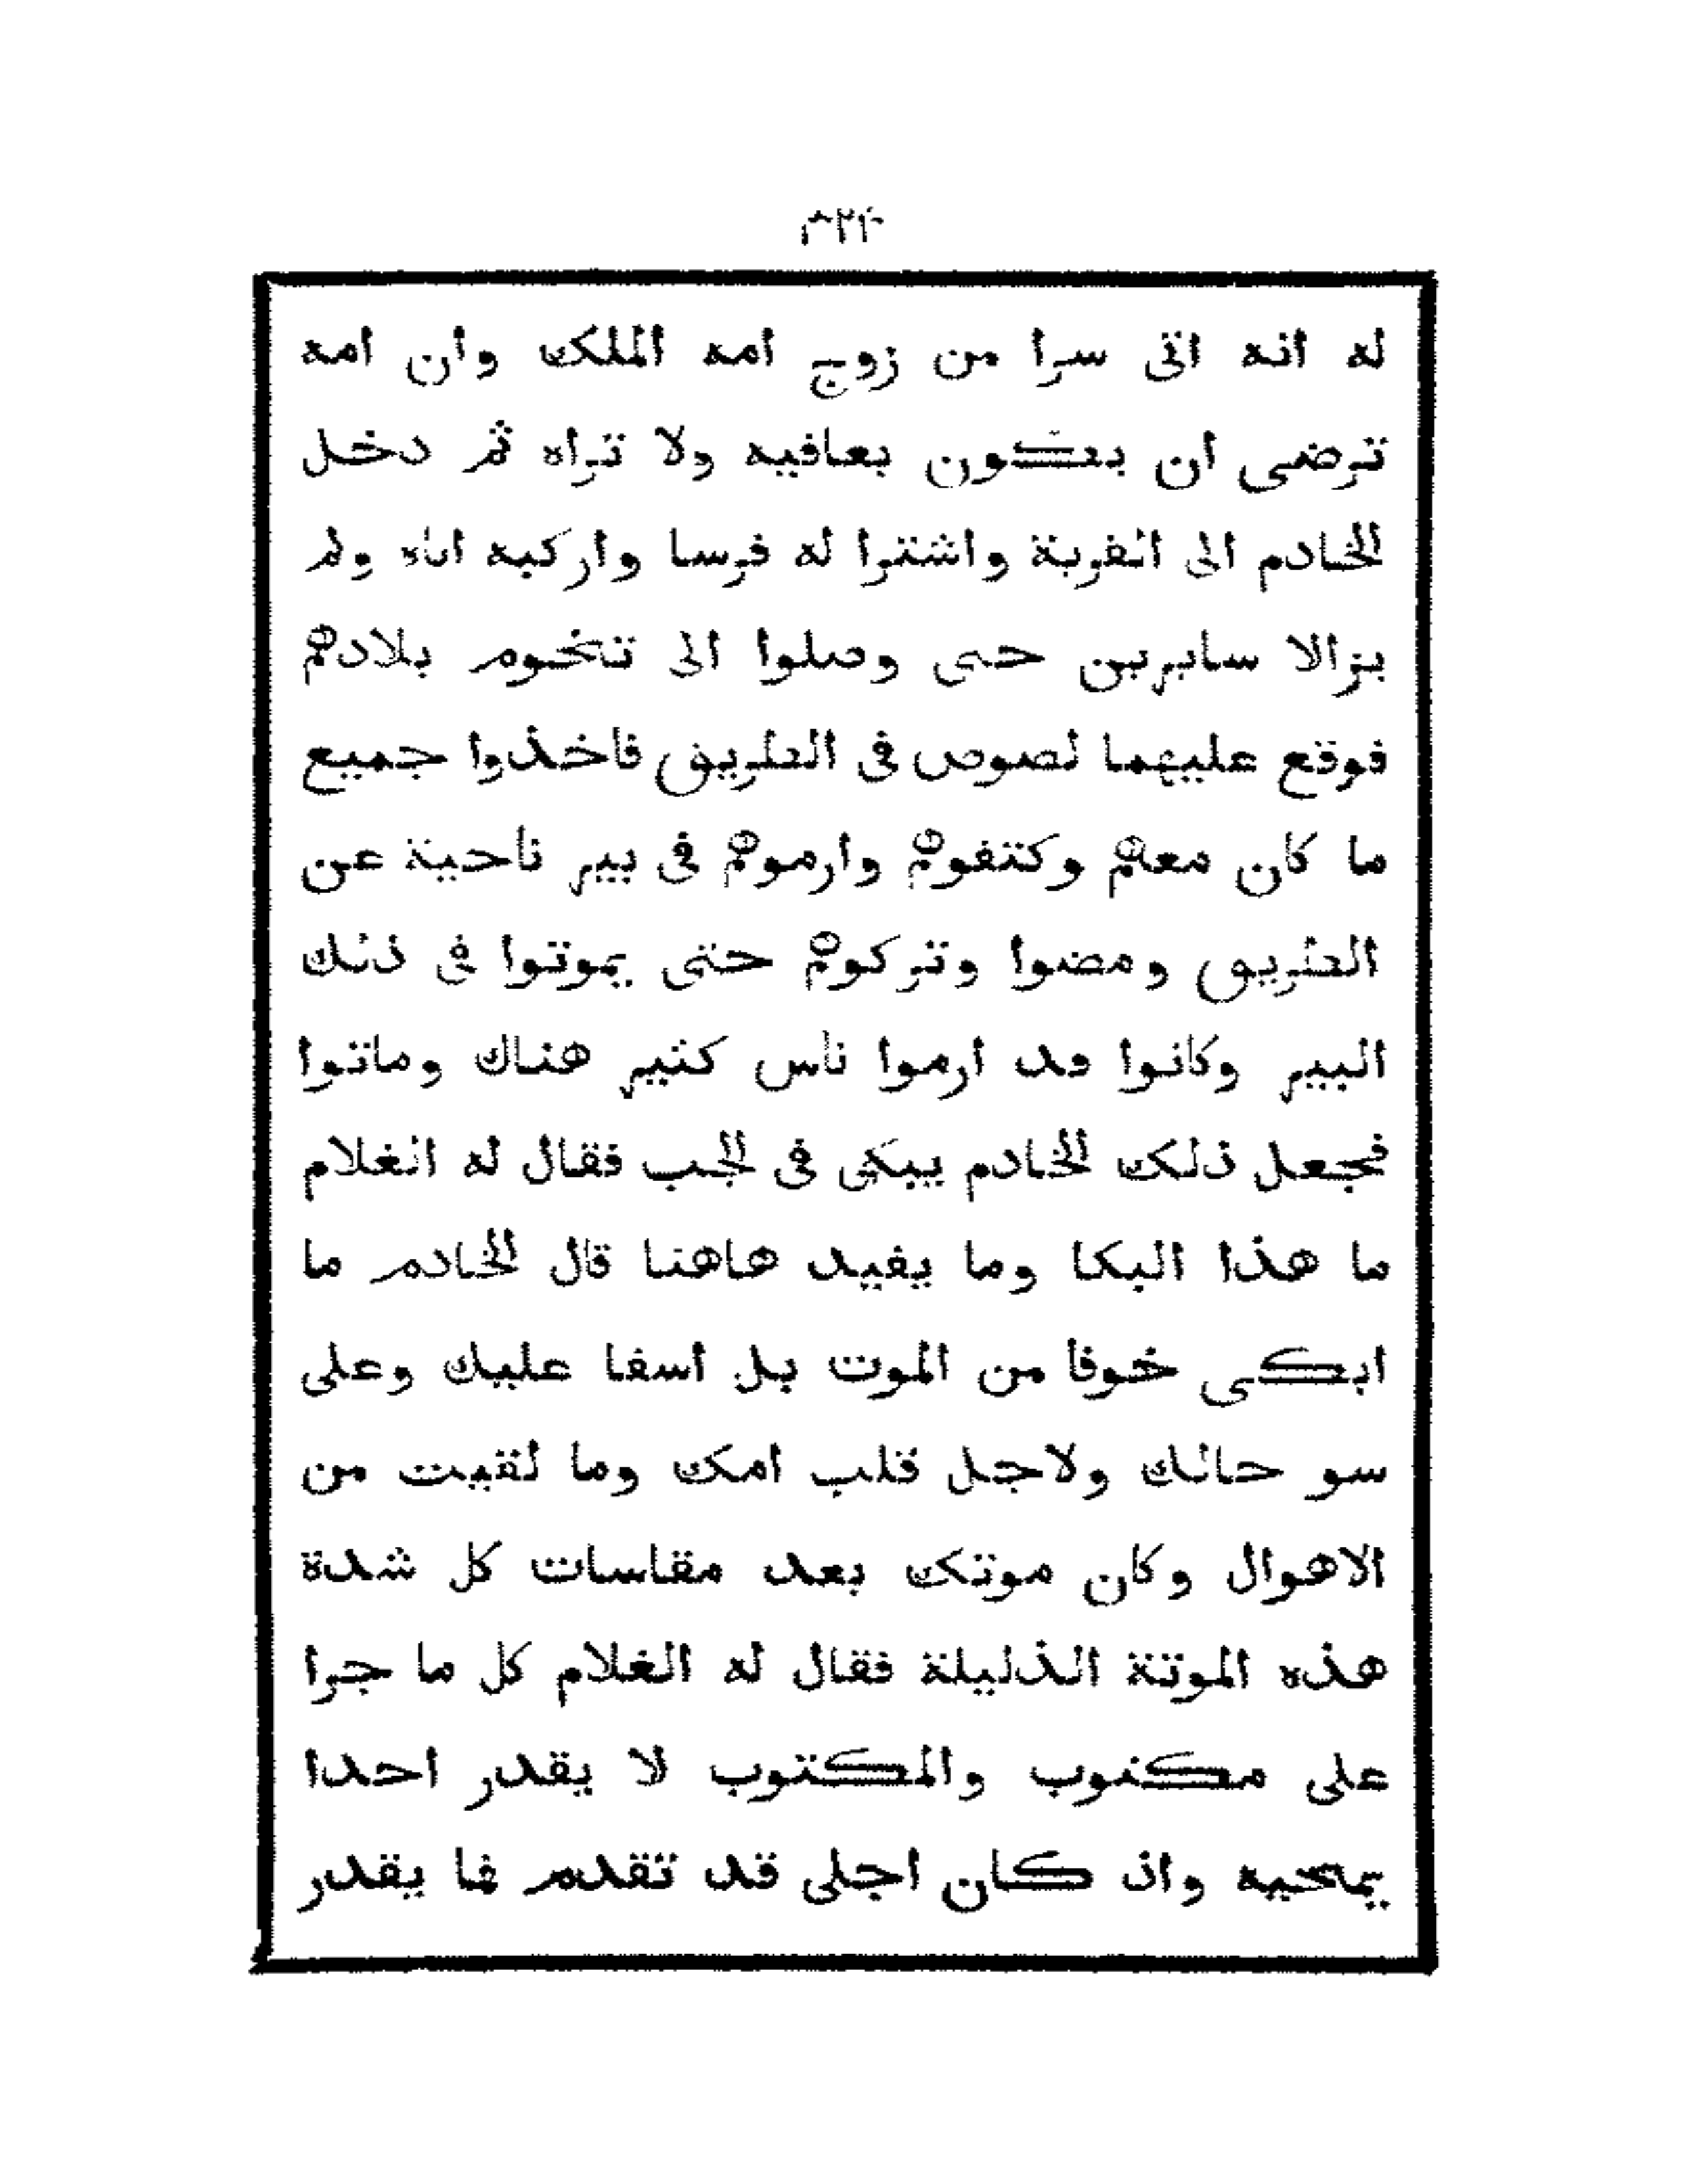 له انه اتى سرا من زوج امه الملك وان امه
ترضى ان يكون بعافيه ولا تراه ثم دخل
الخادم الى القرية واشترا له فرسا واركبه اياه ولم
يزالا سايرين حتى وصلوا الى تخوم بلادهم
فوقع عليهما لصوص فى الطريق فاخذوا جميع
ما كان معهم وكتفوهم وارموهم فى بير ناحية عن
الطريق ومضوا وتركوهم حتى يموتوا فى ذلك
البير وكانوا قد ارموا ناس كثير هناك وماتوا
فجعل ذلك الخادم يبكى فى الجب فقال له الغلام
ما هذا البكا وما يفيد هاهنا قال الخادم ما
ابكى خوفا من الموت بل اسفا عليك وعلى
سو حالك ولاجل قلب امك وما لقيت من
الاهوال وكان موتك بعد مقاسات كل شدة
هذه الموتة الذليلة فقال له الغلام كل ما جرا
على مكتوب والمكتوب لا يقدر احدا
يمحيه وان كان اجلى قد تقدم فما يقدر